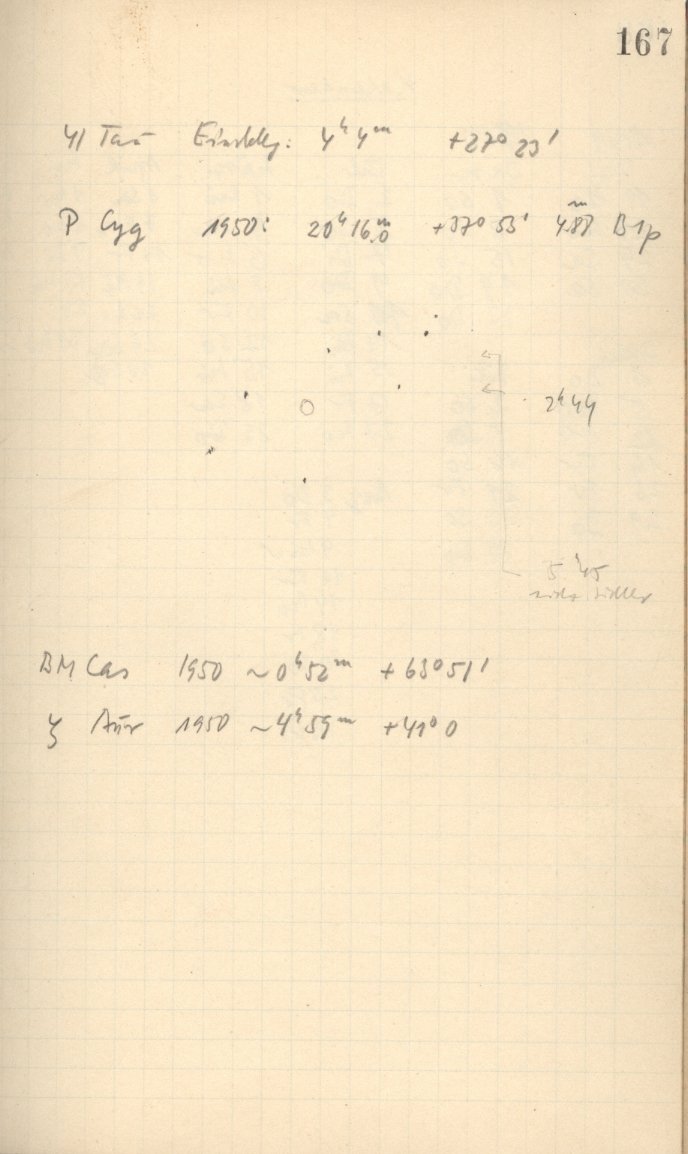 167
41 Tau Einstellg: 4ʰ 4ᵐ +27° 23'
P Cyg 1950: 20ʰ 16ᵐ.0 +37° 53' 4ᵐ.88 B1p
2ʰ44
5ʰ45
BM Cas 1950 ~0ʰ52ᵐ +63°51'
ζ Aur 1950 ~4ʰ59ᵐ +41°0